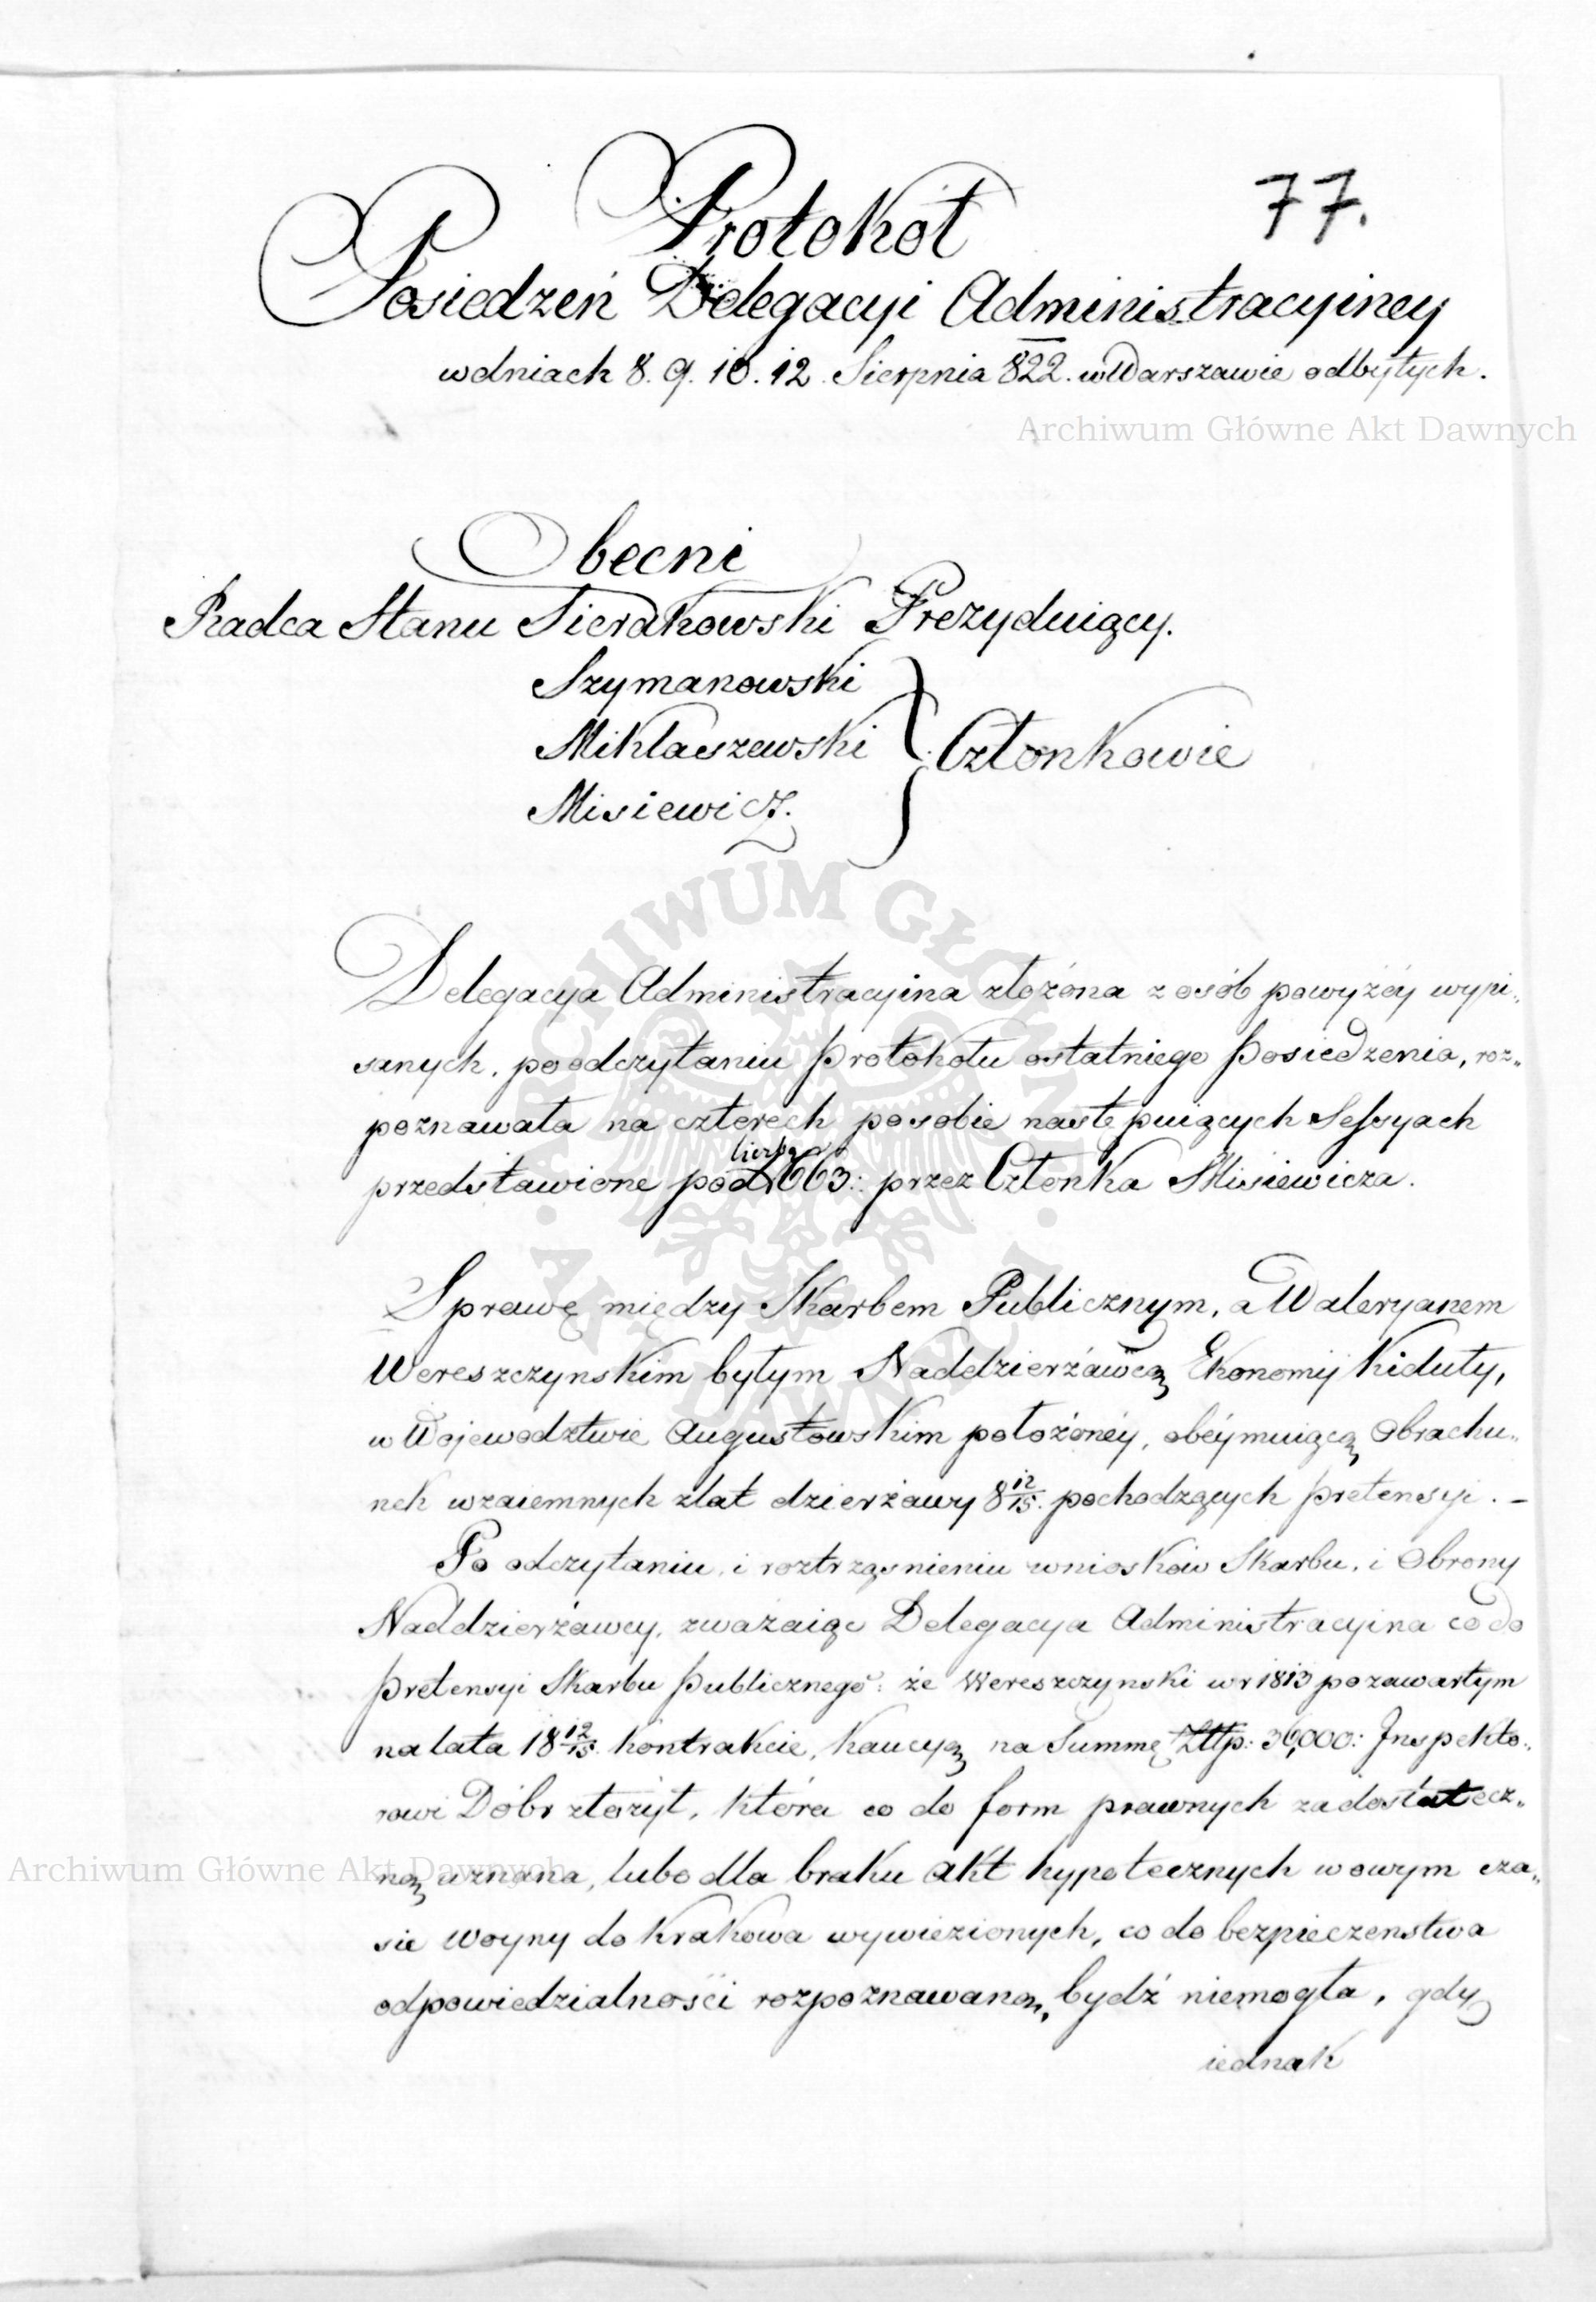 77.
Protokoł
Posiedzeń Delegacyi Administracyiney
w dniach 8. 9. 10. 12. Sierpnia 822. w Warszawie odbytych.
Archiwum Główne Akt Dawnych
Obecni
Radca Stanu Sierakowski Prezyduiący.
Szymanowski
Miklaszewski } Członkowie
Misiewicz.
ARCHIWUM GŁÓWNE · AKT DAWNYCH ·
Delegacya Administracyina złożona z osób powyżéy wypi„
sanych, po odczytaniu Protokołu ostatniego Posiedzenia, roz„
poznawała na czterech po sobie następuiących Sessyach
przedstawione pod liczbą 663: przez Członka Misiewicza.
Sprawę między Skarbem Publicznym, a Waleryanem
Wereszczynskim byłym Naddzierżawcą Ekonomij Kiduły,
w Wojewodztwie Augustowskim położonéy, obéymuiącą Obrachu„
nek wzaiemnych z lat dzierżawy 8 12/15. pochodzących pretensyi. –
Po odczytaniu, i roztrząśnieniu wniosków Skarbu, i Obrony
Naddzierżawcy, zważaiąc Delegacya Administracyina co do
Pretensyi Skarbu Publicznego: że Wereszczynski w r 1813 po zawartym
na lata 18 12/15. kontrakcie, kaucyą na Summę Złtp: 36,000: Inspekto„
rowi Dóbr złożył, która co do form prawnych za dostatecz„
ną uznana, lubo dla braku akt hypotecznych w owym cza„
Archiwum Główne Akt Dawnych
sie woyny do Krakowa wywiezionych, co do bezpieczenstwa
odpowiedzialności rozpoznawaną bydź niemogła, gdy
iednak